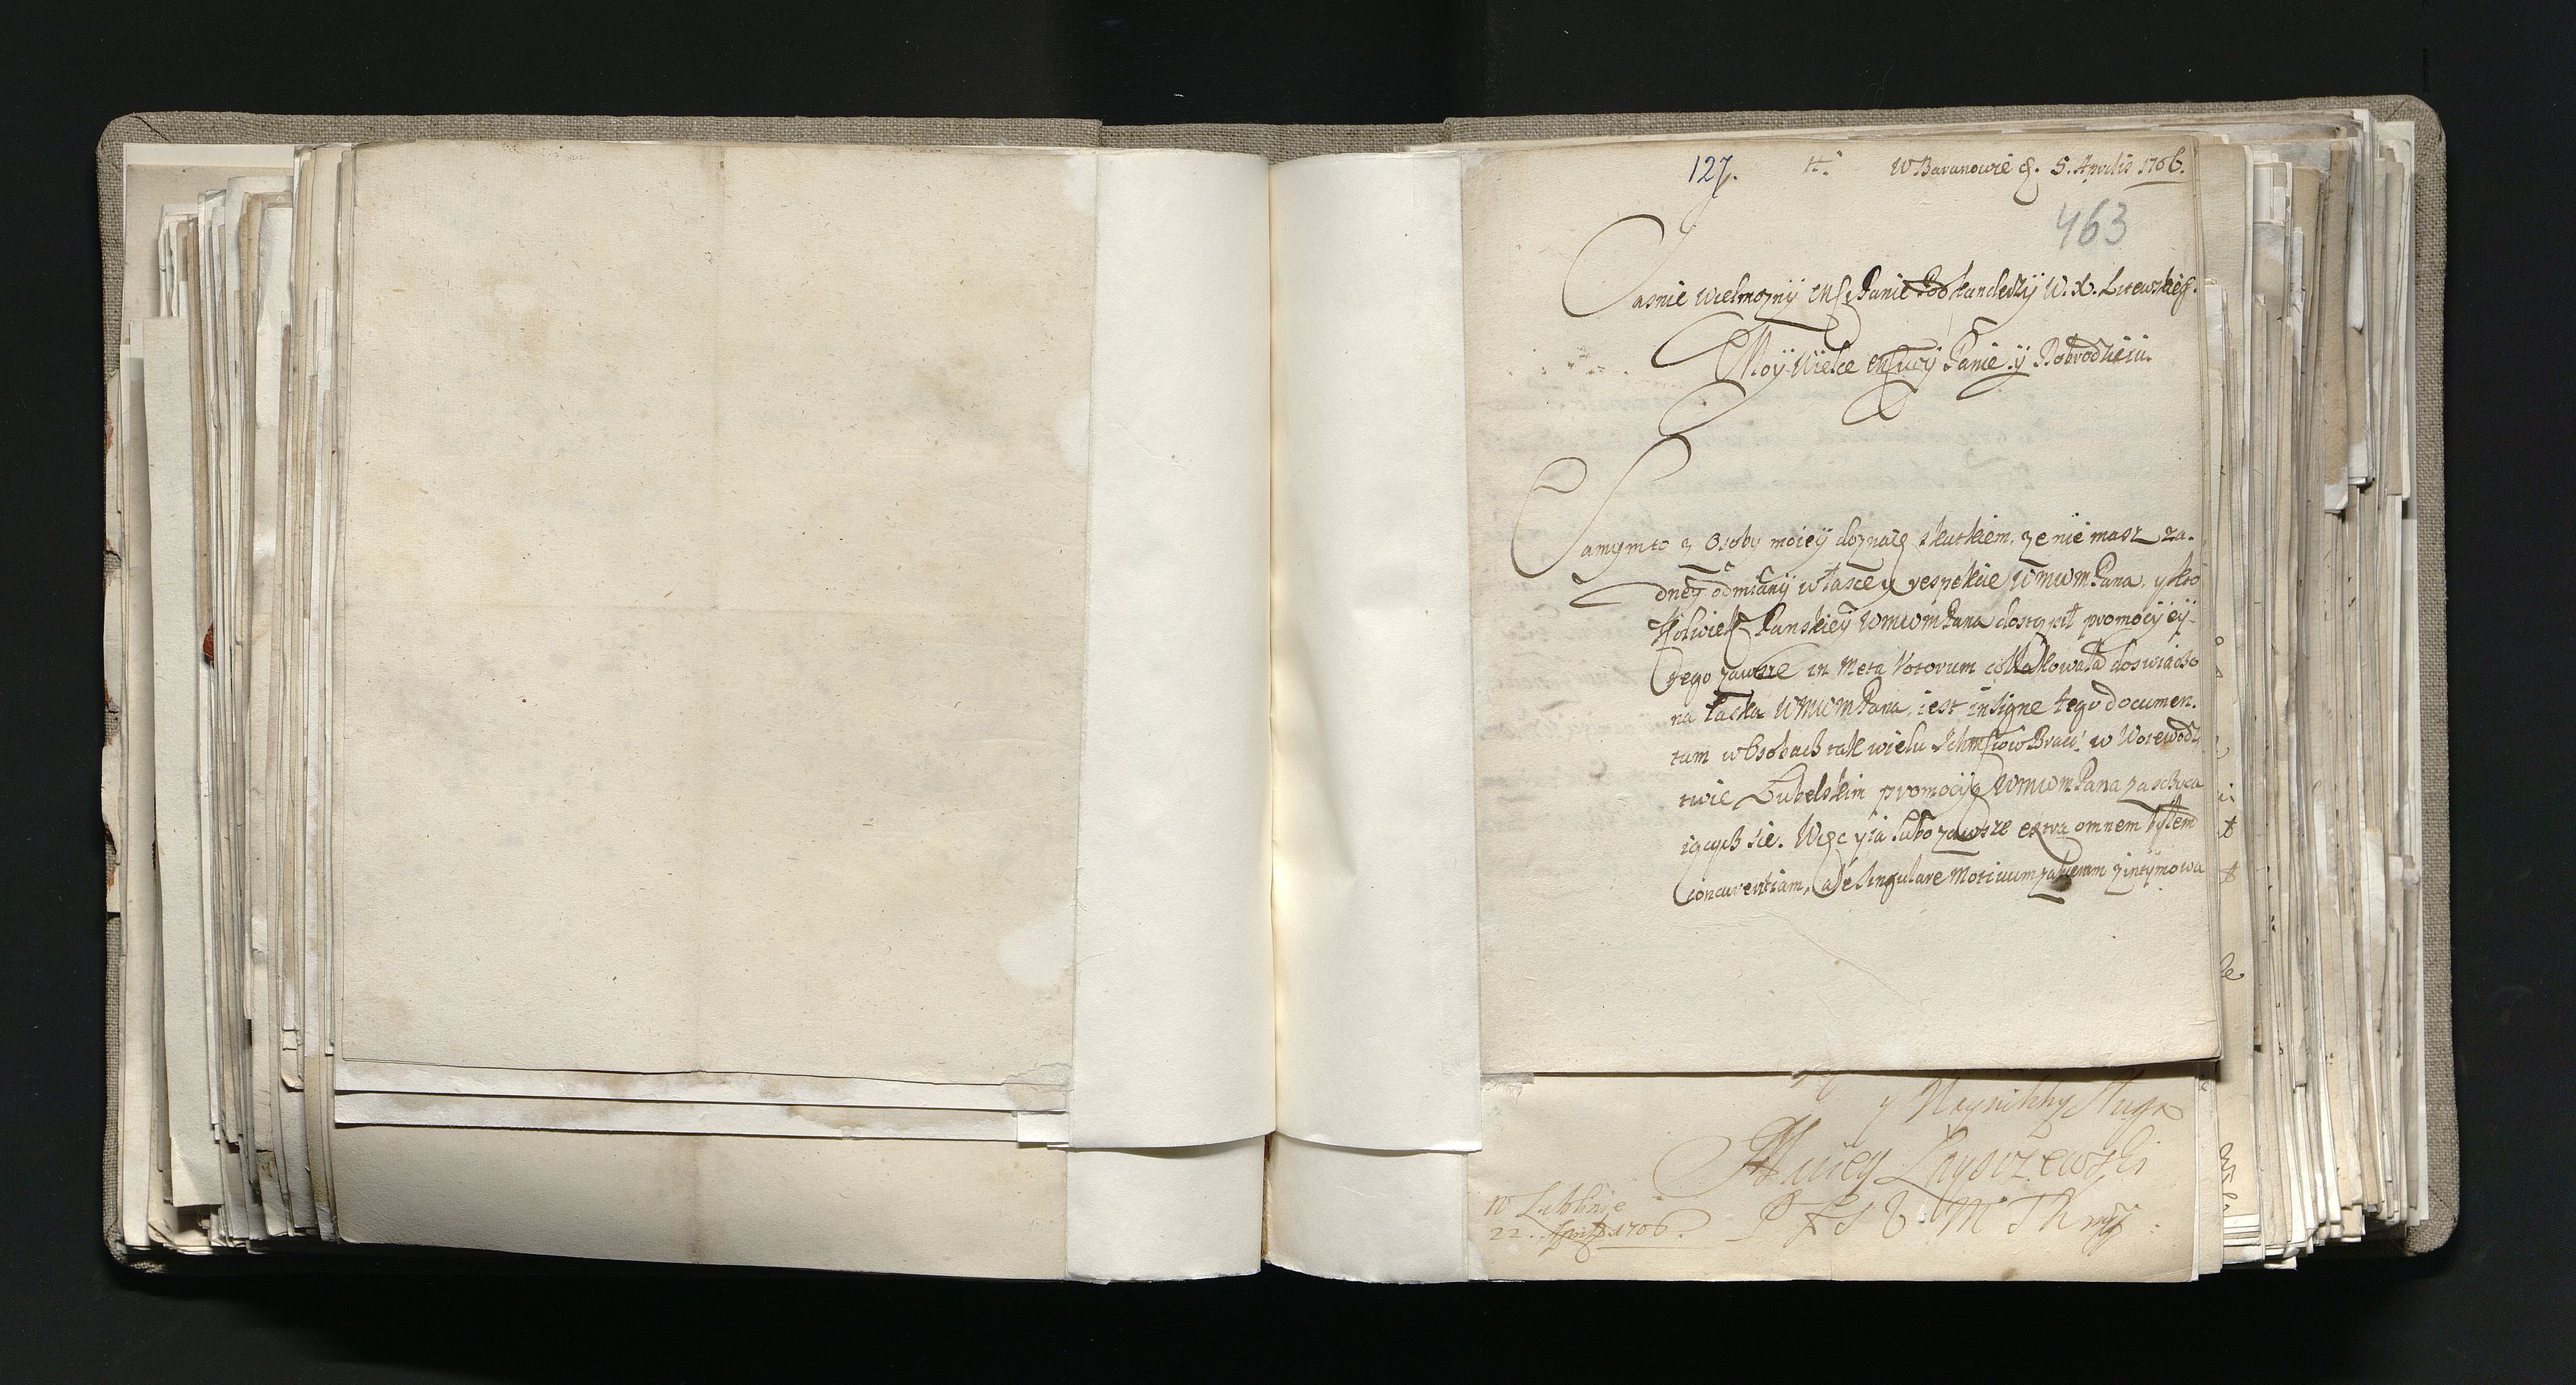 127. W Baranowie d. 5. Aprilis 1706.
463
Jasnie Wielmozny Mſci Panie Podkanclerzÿ W. X. Litewskieg.
Moÿ Wielce Mſciwÿ Panie ÿ Dobrodzieiu.
Samym to z Osoby moieÿ doznaię skutkiem, ze nie masz za-
dneÿ odmianÿ w łasce y respekcie WMWMPana, y kto
kolwiek Panskieÿ WMWMPana dostąpił promocÿ eÿ
tego zawsze in Meta Votorum collokowała doswiadczo
na łaska WMWMPana, iest insigne tego documen-
tum w Osobach tak wielu Ichmſciow Braci w Woiewodz
twie Lubelskim promocÿą WMWMPana zaszczyca
iących sie. Więc y ia lubo zawsze extra omnem byłem
Concurentiam, ale singulare Motivum zintymowa
y Nayniższy Sługa
W Lublinie
22. Aprilis 1706.